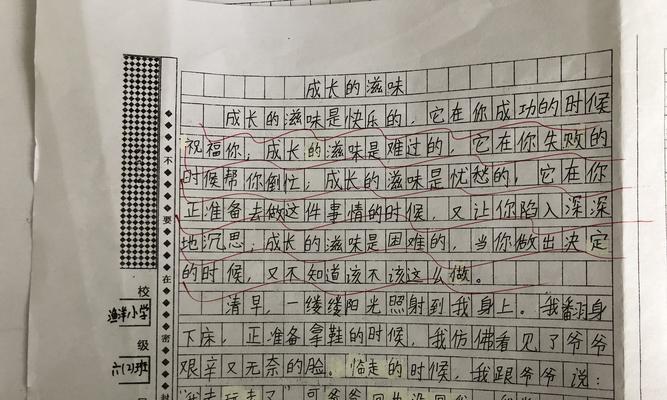 成长的滋味
成长的滋味是快乐的，它在你成功的时候
祝福你；成长的滋味是难过的，它在你失败的
时候帮你倒忙；成长的滋味是忧愁的，它在你
正准备去做这件事情的时候，又让你陷入深深
地沉思；成长的滋味是困难的，当你做出决定
的时候，又不知道该不该这么做。
清早，一缕缕阳光照射到我身上。我翻身
下床，正准备拿鞋的时候，我仿佛看见了爷爷
艰辛又无奈的脸。临走的时候，我跟爷爷说：
不
要
在
密
封
校
小学
级
六(2)班